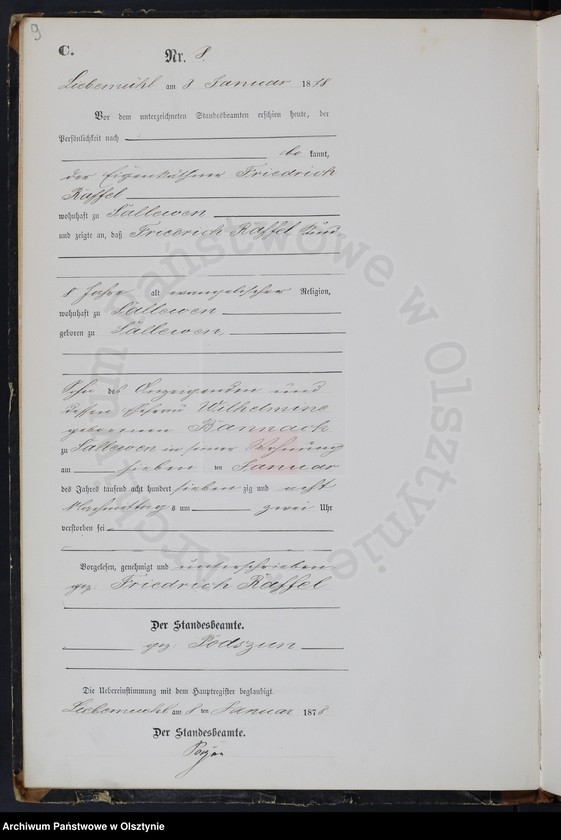 9
C.
Nr. 8.
Liebemühl am 8 Januar 1878
Vor dem unterzeichneten Standesbeamten erschien heute, der
Persönlichkeit nach
be kannt,
der Eigenkäthner Friedrich
Raffel
wohnhaft zu Sallewen
und zeigte an, daß Friedrich Raffel
8 Jahre alt evangelischer Religion,
wohnhaft zu Sallewen
geboren zu Sallewen,
Sohn des Anzeigenden und
dessen Ehefrau Wilhelmine
geborenen Bannach
zu Sallewen in seiner Wohnung
am sieben ten Januar
des Jahres tausend acht hundert sieben zig und acht
Nachmittag s um zwei Uhr
verstorben sei
Vorgelesen, genehmigt und unterschrieben
gez. Friedrich Raffel
Der Standesbeamte.
gez. Podszun
Die Uebereinstimmung mit dem Hauptregister beglaubigt
Liebemuehl am 8 ten Januar 1878
Der Standesbeamte.
Archiwum Państwowe w Olsztynie
Archiwum Państwowe w Olsztynie